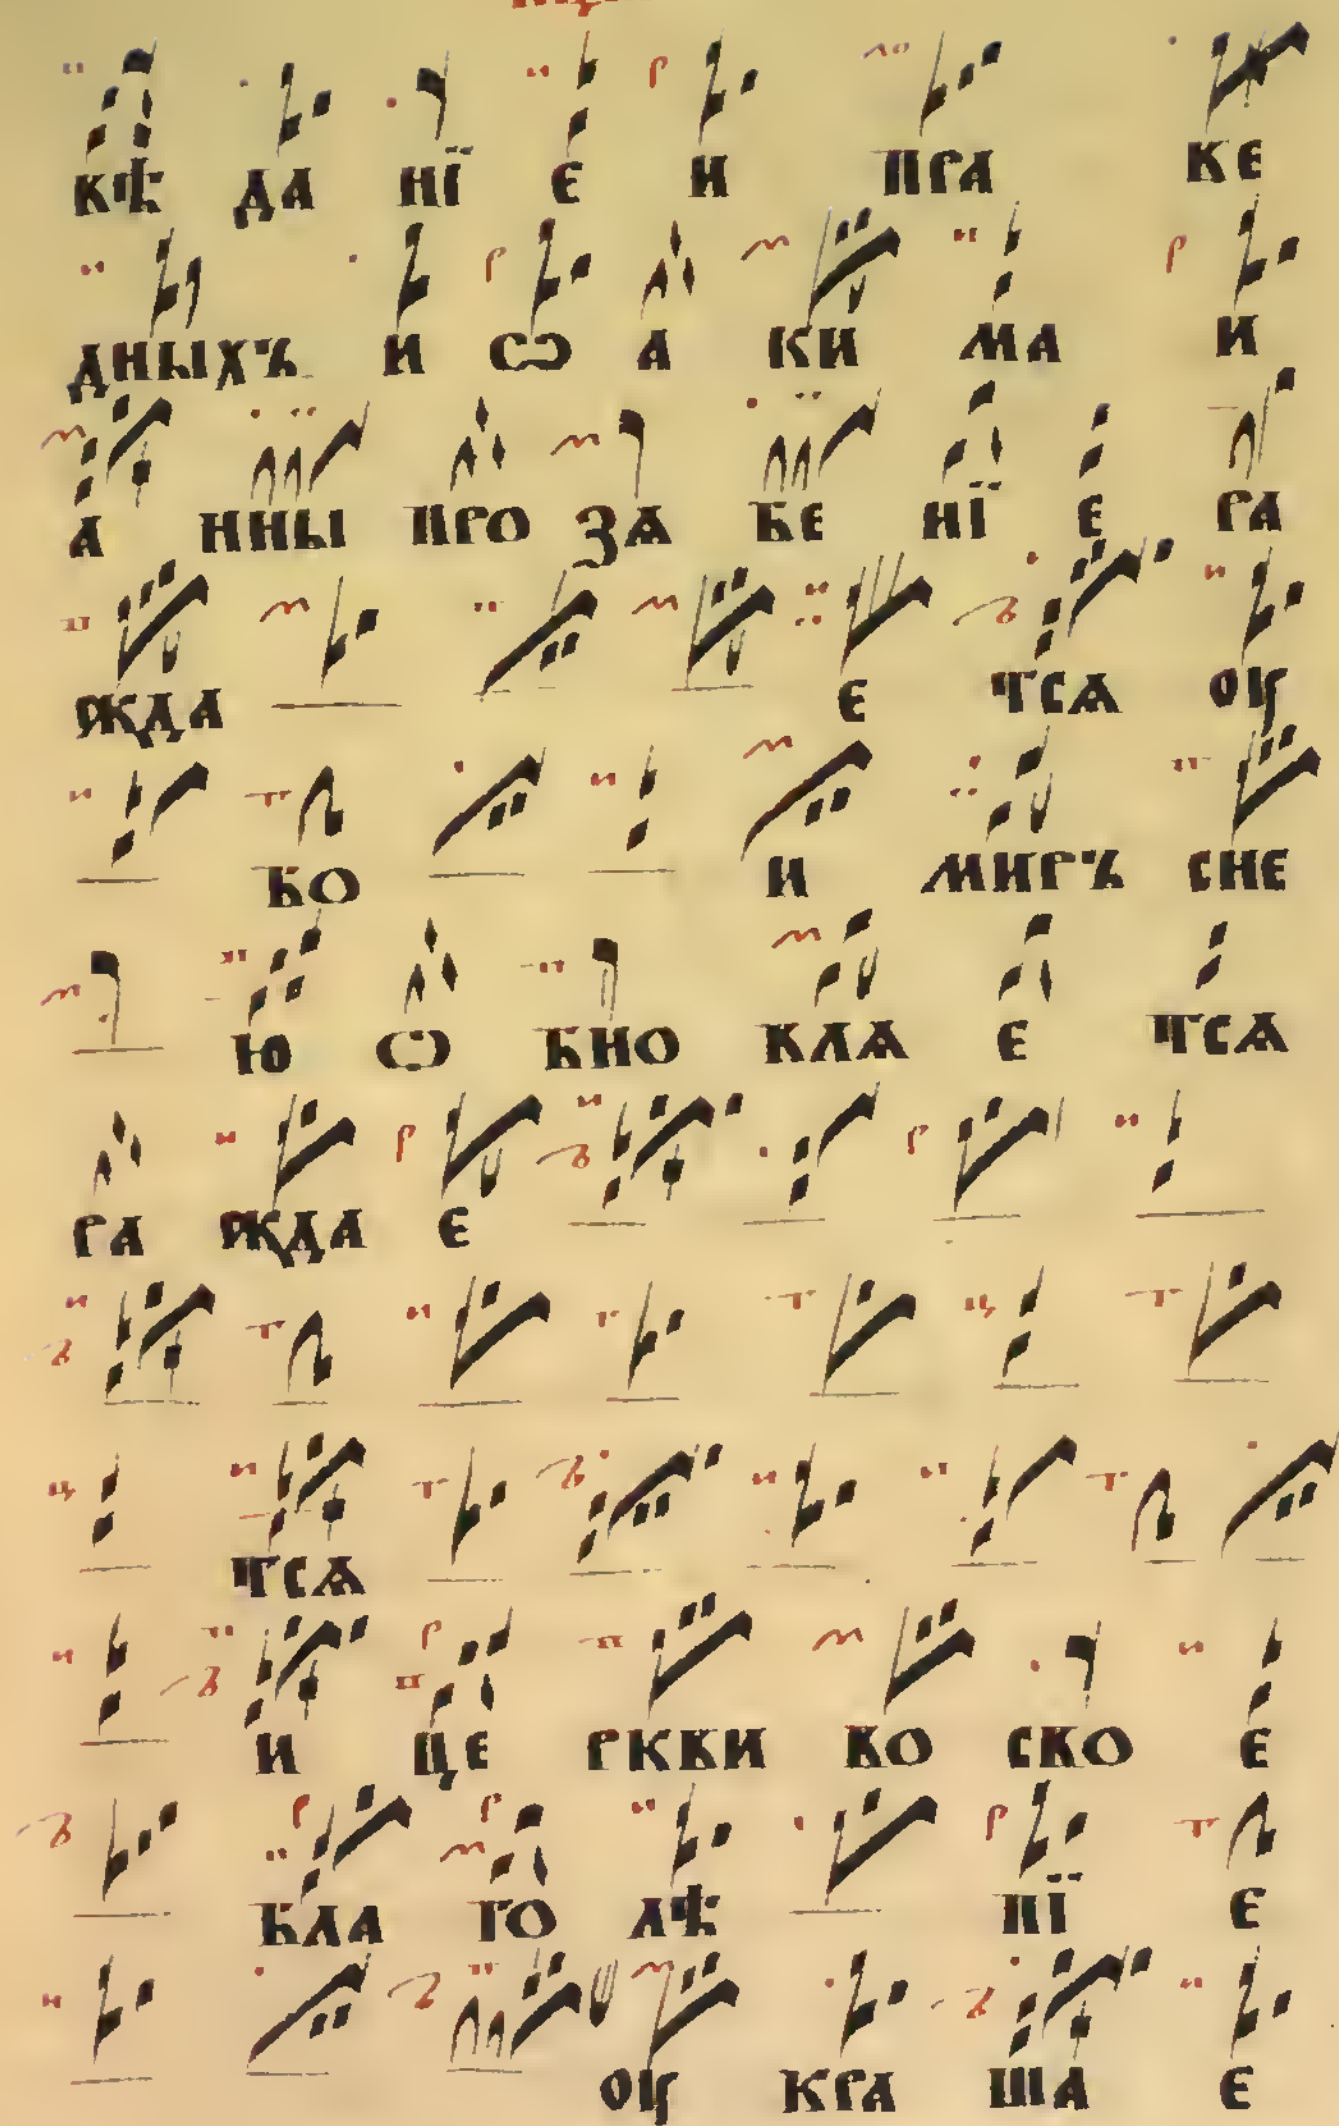 вѣ да нї е и пра ве
дныхъ и ѿ а ки ма и
а нны про зѧ бе нї е ра
жда е тсѧ оу
бо и миръ сне
ю ѡ бно влѧ е тсѧ
ра жда е
тсѧ
и це ркви во ско е
бла го лѣ пї е
оу кра ша е